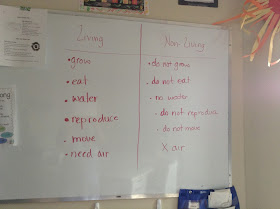 Living
• grow
• eat
• water
• reproduce
• move
• need air
Non Living
• do not grow
• do not eat
- no water
- do not reproduce
- do not move
X air